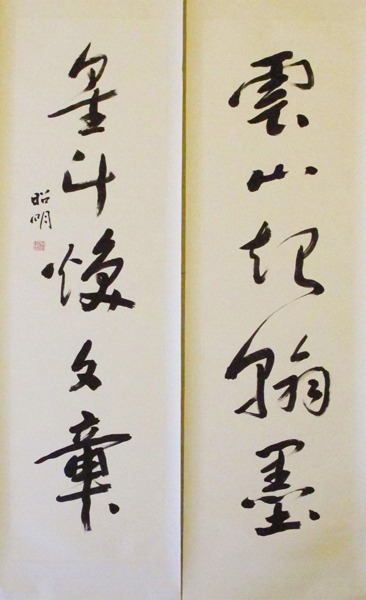 雲山起翰墨
星斗煥文章
昭明